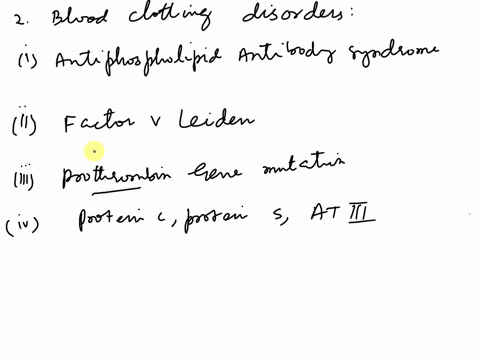 2. Blood clotting disorders:
(i) Antiphospholipid Antibody syndrome
(ii) Factor V Leiden
(iii) Prothrombin Gene mutation
(iv) Protein C, protein S, AT III